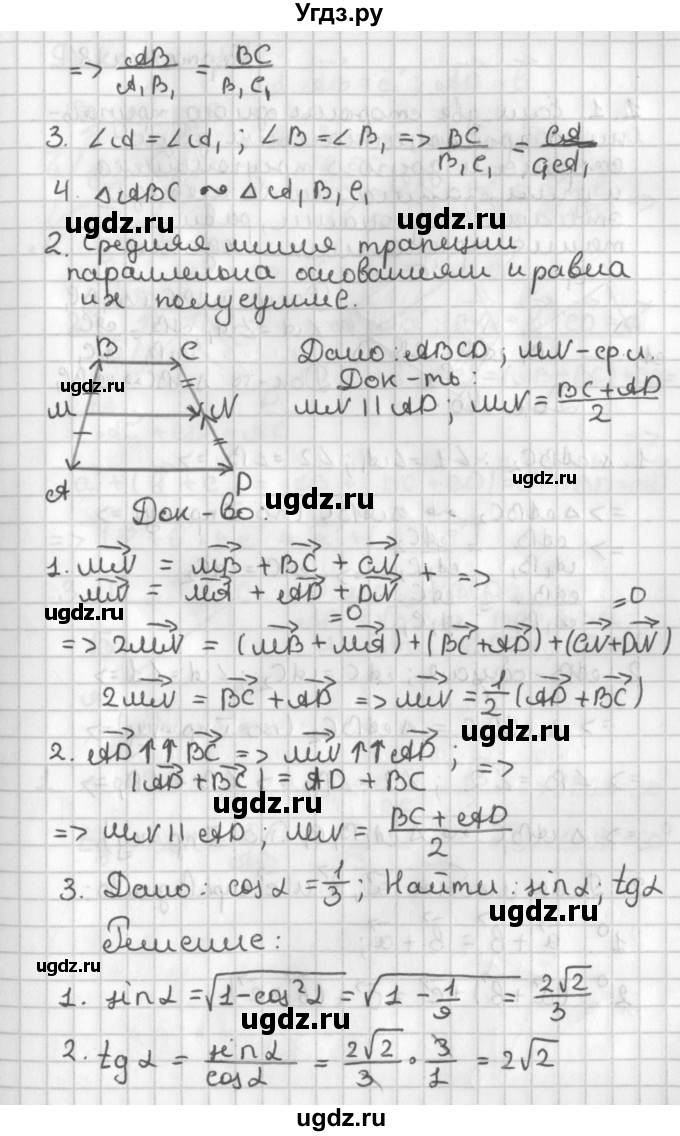 Угдз.ру
=> AB/A₁B₁ = BC/B₁C₁
3. ∠A = ∠A₁ ; ∠B = ∠B₁ => BC/B₁C₁ = CA/C₁A₁
4. △ABC ∾ △A₁B₁C₁
ugdz.ru ugdz.ru
2. Средняя линия трапеции
параллельна основаниям и равна
их полусумме.
B C Дано: ABCD; MN-ср.л.
ugdz.ru Док-ть:
M N MN || AD ; MN = (BC + AD)/2
ugdz.ru
A D
Док-во: ugdz.ru
1. MN = MB + BC + CN
MN = MA + AD + DN + =>
ugdz.ru =0 =0
=> 2MN = (MB + MA) + (BC + AD) + (CN + DN)
2MN = BC + AD => MN = 1/2 (AD + BC)
ugdz.ru
2. AD ↑↑ BC => MN ↑↑ AD ; =>
|AD + BC| = AD + BC
ugdz.ru
=> MN || AD ; MN = (BC + AD)/2
ugdz.ru
3. Дано: cosα = 1/3 ; Найти: sinα; tgα
ugdz.ru
Решение:
ugdz.ru
1. sinα = √(1-cos²α) = √(1 - 1/9) = 2√2/3
ugdz.ru ugdz.ru
2. tgα = sinα/cosα = 2√2/3 · 3/1 = 2√2
ugdz.ru